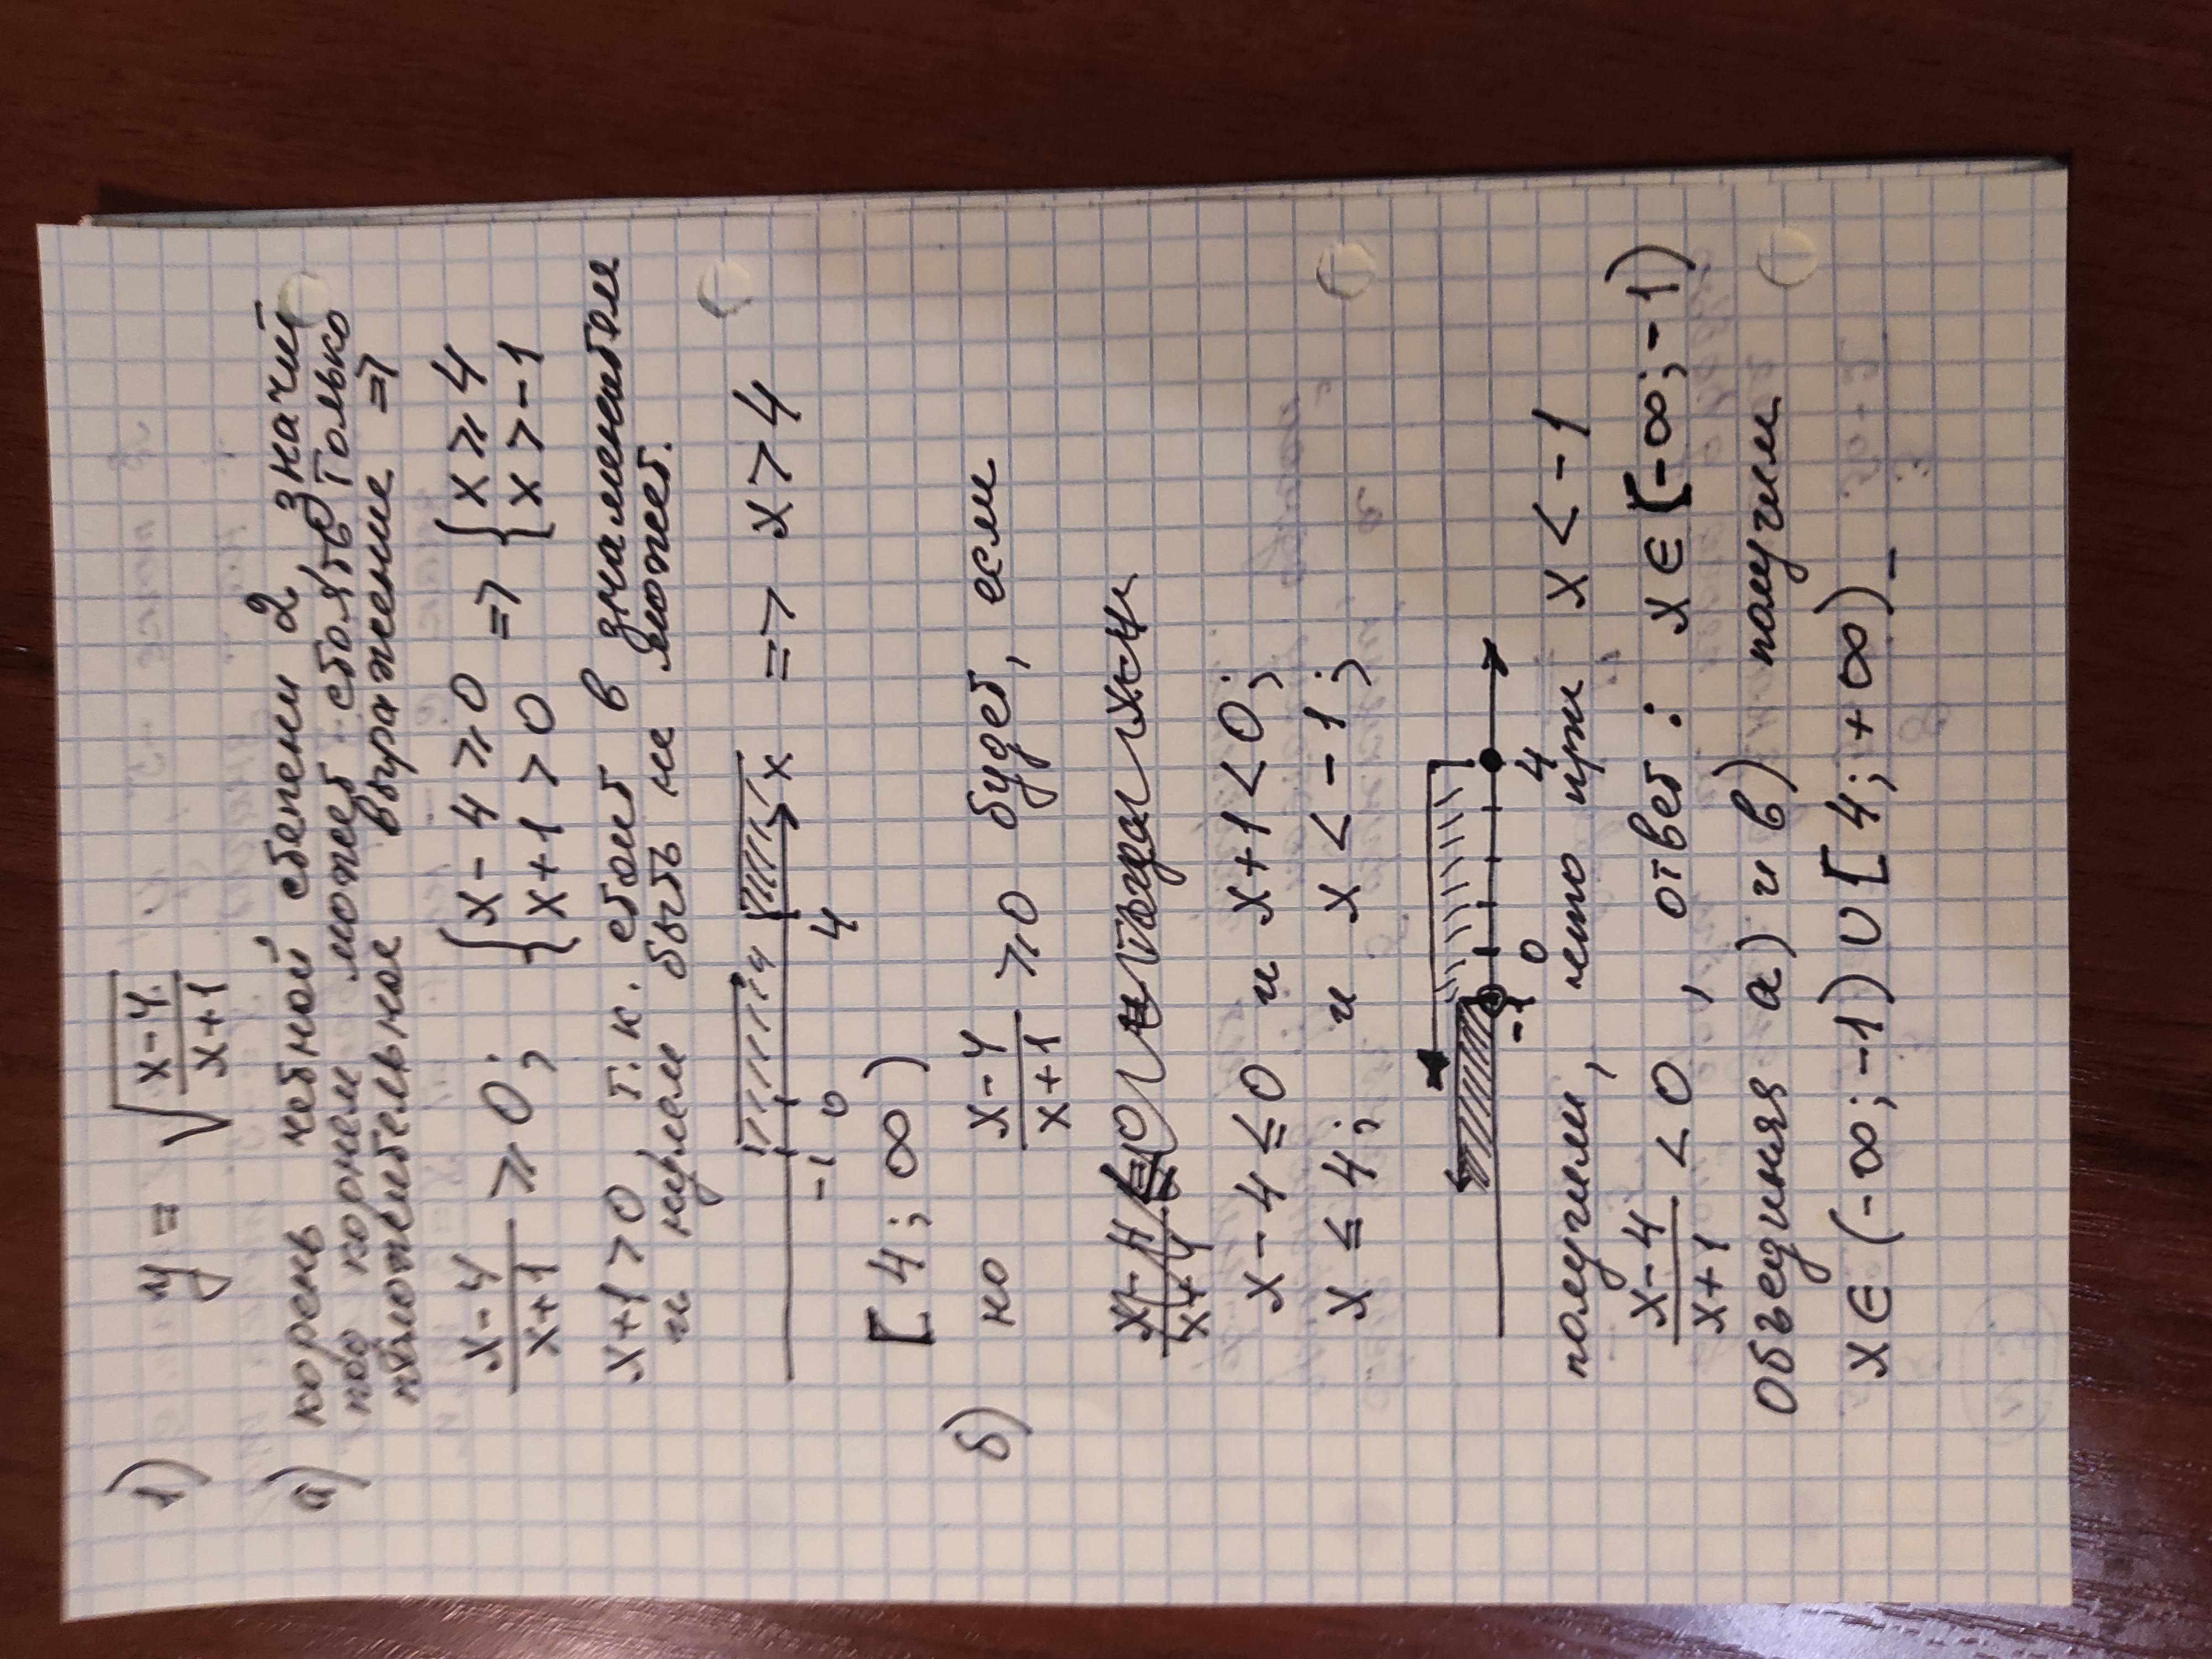 1) y = √(x-4)/(x+1)
а) корень четной степени 2, значит
под корнем может стоять только
положительное выражение =>
(x-4)/(x+1) ≥ 0; { x-4 ≥ 0 => { x ≥ 4
{ x+1 > 0 { x > -1
x+1 > 0 т.к. стоит в знаменателе
и нулем быть не может.
-1 0 4 x => x > 4
[4; ∞)
б) но (x-4)/(x+1) ≥ 0 будет, если
x-4 ≤ 0 и x+1 < 0;
x ≤ 4; и x < -1;
-1 0 4
получим, что при x < -1
(x-4)/(x+1) < 0, ответ: x ∈ (-∞; -1)
Объединяя а) и в) получим
x ∈ (-∞; -1) ∪ [4; +∞)